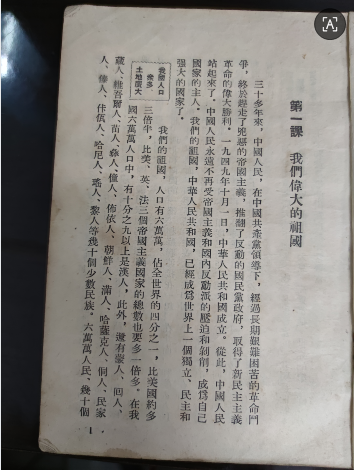 第一課　我們偉大的祖國
三十多年來，中國人民，在中國共產黨領導下，經過長期艱難困苦的革命鬥
爭，終於趕走了兇惡的帝國主義，推翻了反動的國民黨政府，取得了新民主主義
革命的偉大勝利。一九四九年十月一日，中華人民共和國成立。從此，中國人民
站起來了。中國人民永遠不再受帝國主義和國內反動派的壓迫和剝削，成爲自己
國家的主人。我們的祖國，中華人民共和國，已經成爲世界上一個獨立、民主和
強大的國家了。
我國人口
衆多
土地廣大
我們的祖國，人口有六萬萬，佔全世界的四分之一，比美國約多
三倍半，比美、英、法三個帝國主義國家的總數也要多一倍多。在我
國六萬萬人口中，有十分之九以上是漢人，此外，還有蒙人、回人、
藏人、維吾爾人、苗人、彝人、僮人、佈依人、朝鮮人、滿人、哈薩克人、侗人、民家
人、傣人、佧佤人、哈尼人、瑤人、黎人等幾十個少數民族。六萬萬人民、幾十個
1